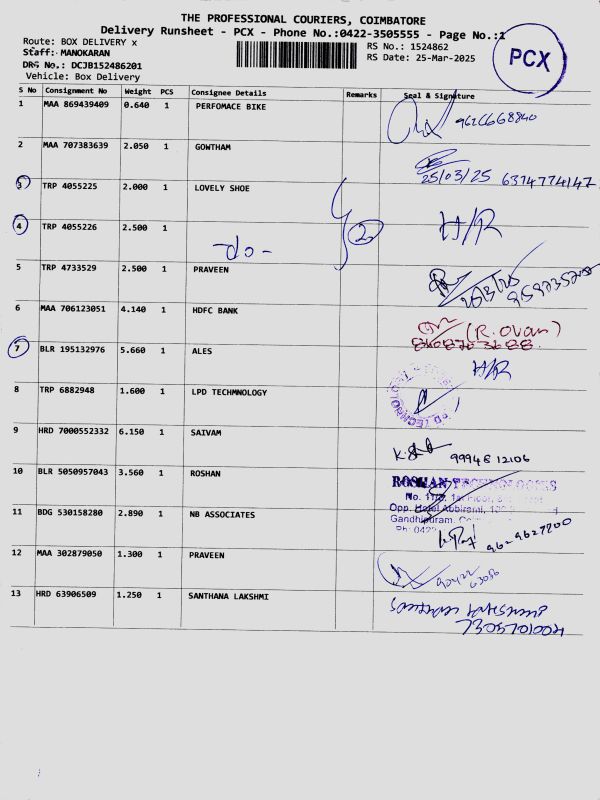 THE PROFESSIONAL COURIERS, COIMBATORE
Delivery Runsheet - PCX - Phone No.:0422-3505555 - Page No.:1
Route: BOX DELIVERY x
RS No.: 1524862
Staff: MANOKARAN
RS Date: 25-Mar-2025
DRS No.: DCJB152486201
Vehicle: Box Delivery
PCX
S No Consignment No Weight PCS Consignee Details Remarks Seal & Signature
1 MAA 869439409 0.640 1 PERFOMACE BIKE
2 MAA 707383639 2.050 1 GOWTHAM
25/03/25 6374774147
3 TRP 4055225 2.000 1 LOVELY SHOE
4 TRP 4055226 2.500 1
-do- 2 H/R
5 TRP 4733529 2.500 1 PRAVEEN
6 MAA 706123051 4.140 1 HDFC BANK
7 BLR 195132976 5.660 1 ALES
H/R
8 TRP 6882948 1.600 1 LPD TECHMNOLOGY
9 HRD 7000552332 6.150 1 SAIVAM
99948 12106
10 BLR 5050957043 3.560 1 ROSHAN
ROSHAN TECHNOLOGIES
Opp. Hotel Abbirami,
Gandhipuram,
Ph: 0422
11 BDG 530158280 2.890 1 NB ASSOCIATES
12 MAA 302879050 1.300 1 PRAVEEN
90422
63086
13 HRD 63906509 1.250 1 SANTHANA LAKSHMI